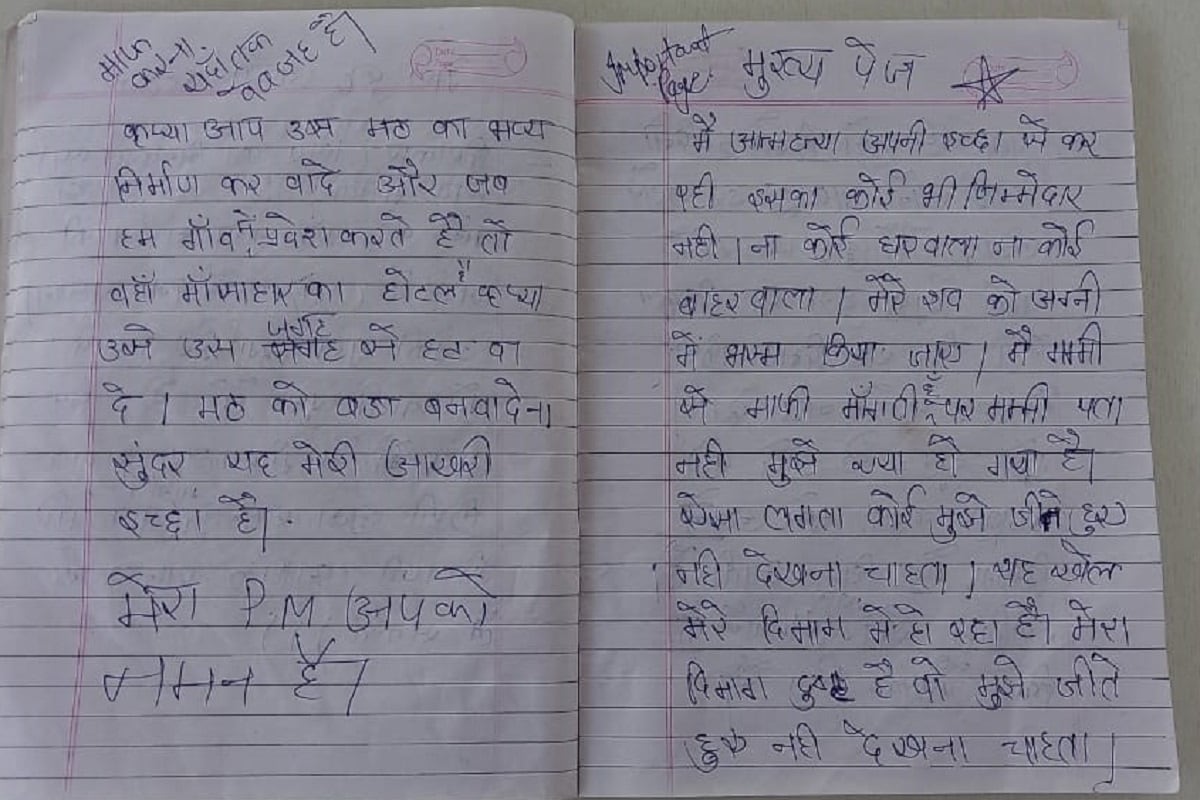 माफ
करना
यहाँ तक
वजह है।
कृप्या आप उस मठ का भव्य
निर्माण कर वादे और जब
हम गाँव में प्रवेश करते है तो
वहाँ माँसाहार का होटल है कृप्या
उसे उस जगह से हट वा
दे । मठ को बडा बनवादेना
सुंदर यह मेरी आखरी
इच्छा है।
मेरा P.M आपको
नमन है।
Important
Page
मुख्य पेज
मै आत्महत्या अपनी इच्छा से कर
रही इसका कोई भी जिम्मेदार
नही । ना कोई घरवाला ना कोई
बाहरवाला । मेरे शव को अग्नी
में भस्म किया जाए । मै मम्मी
से माफी माँगती हूँ पर मम्मी पता
नही मुझे क्या हो गया है।
ऐसा लगता कोई मुझे जीते हुए
नही देखना चाहता । यह खेल
मेरे दिमाग में हो रहा है। मेरा
दिमाग दुष्ट है वो मुझे जीते
हुए नही देखना चाहता ।